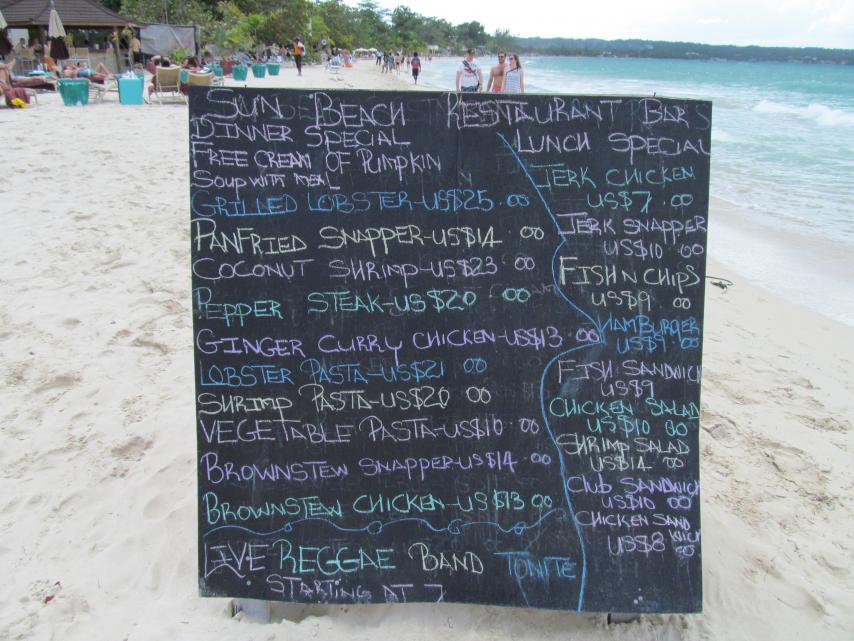 SUN BEACH RESTAURANT BAR
DINNER SPECIAL
FREE CREAM OF PUMPKIN
SOUP WITH MEAL
GRILLED LOBSTER-US$25.00
PANFRIED SNAPPER-US$14.00
COCONUT SHRIMP-US$23 00
PEPPER STEAK-US$20 00
GINGER CURRY CHICKEN-US$13.00
LOBSTER PASTA-US$21 00
SHRIMP PASTA-US$20 00
VEGETABLE PASTA-US$10.00
BROWNSTEW SNAPPER-US$14.00
BROWNSTEW CHICKEN-US$13 00
LIVE REGGAE BAND TONITE
STARTING AT 7
LUNCH SPECIAL
JERK CHICKEN
US$7.00
JERK SNAPPER
US$10.00
FISH N CHIPS
US$9 00
HAMBURGER
US$9.00
FISH SANDWICH
US$9
CHICKEN SALAD
US$10 00
SHRIMP SALAD
US$14 00
CLUB SANDWICH
US$10 00
CHICKEN SANDWICH
US$8 00